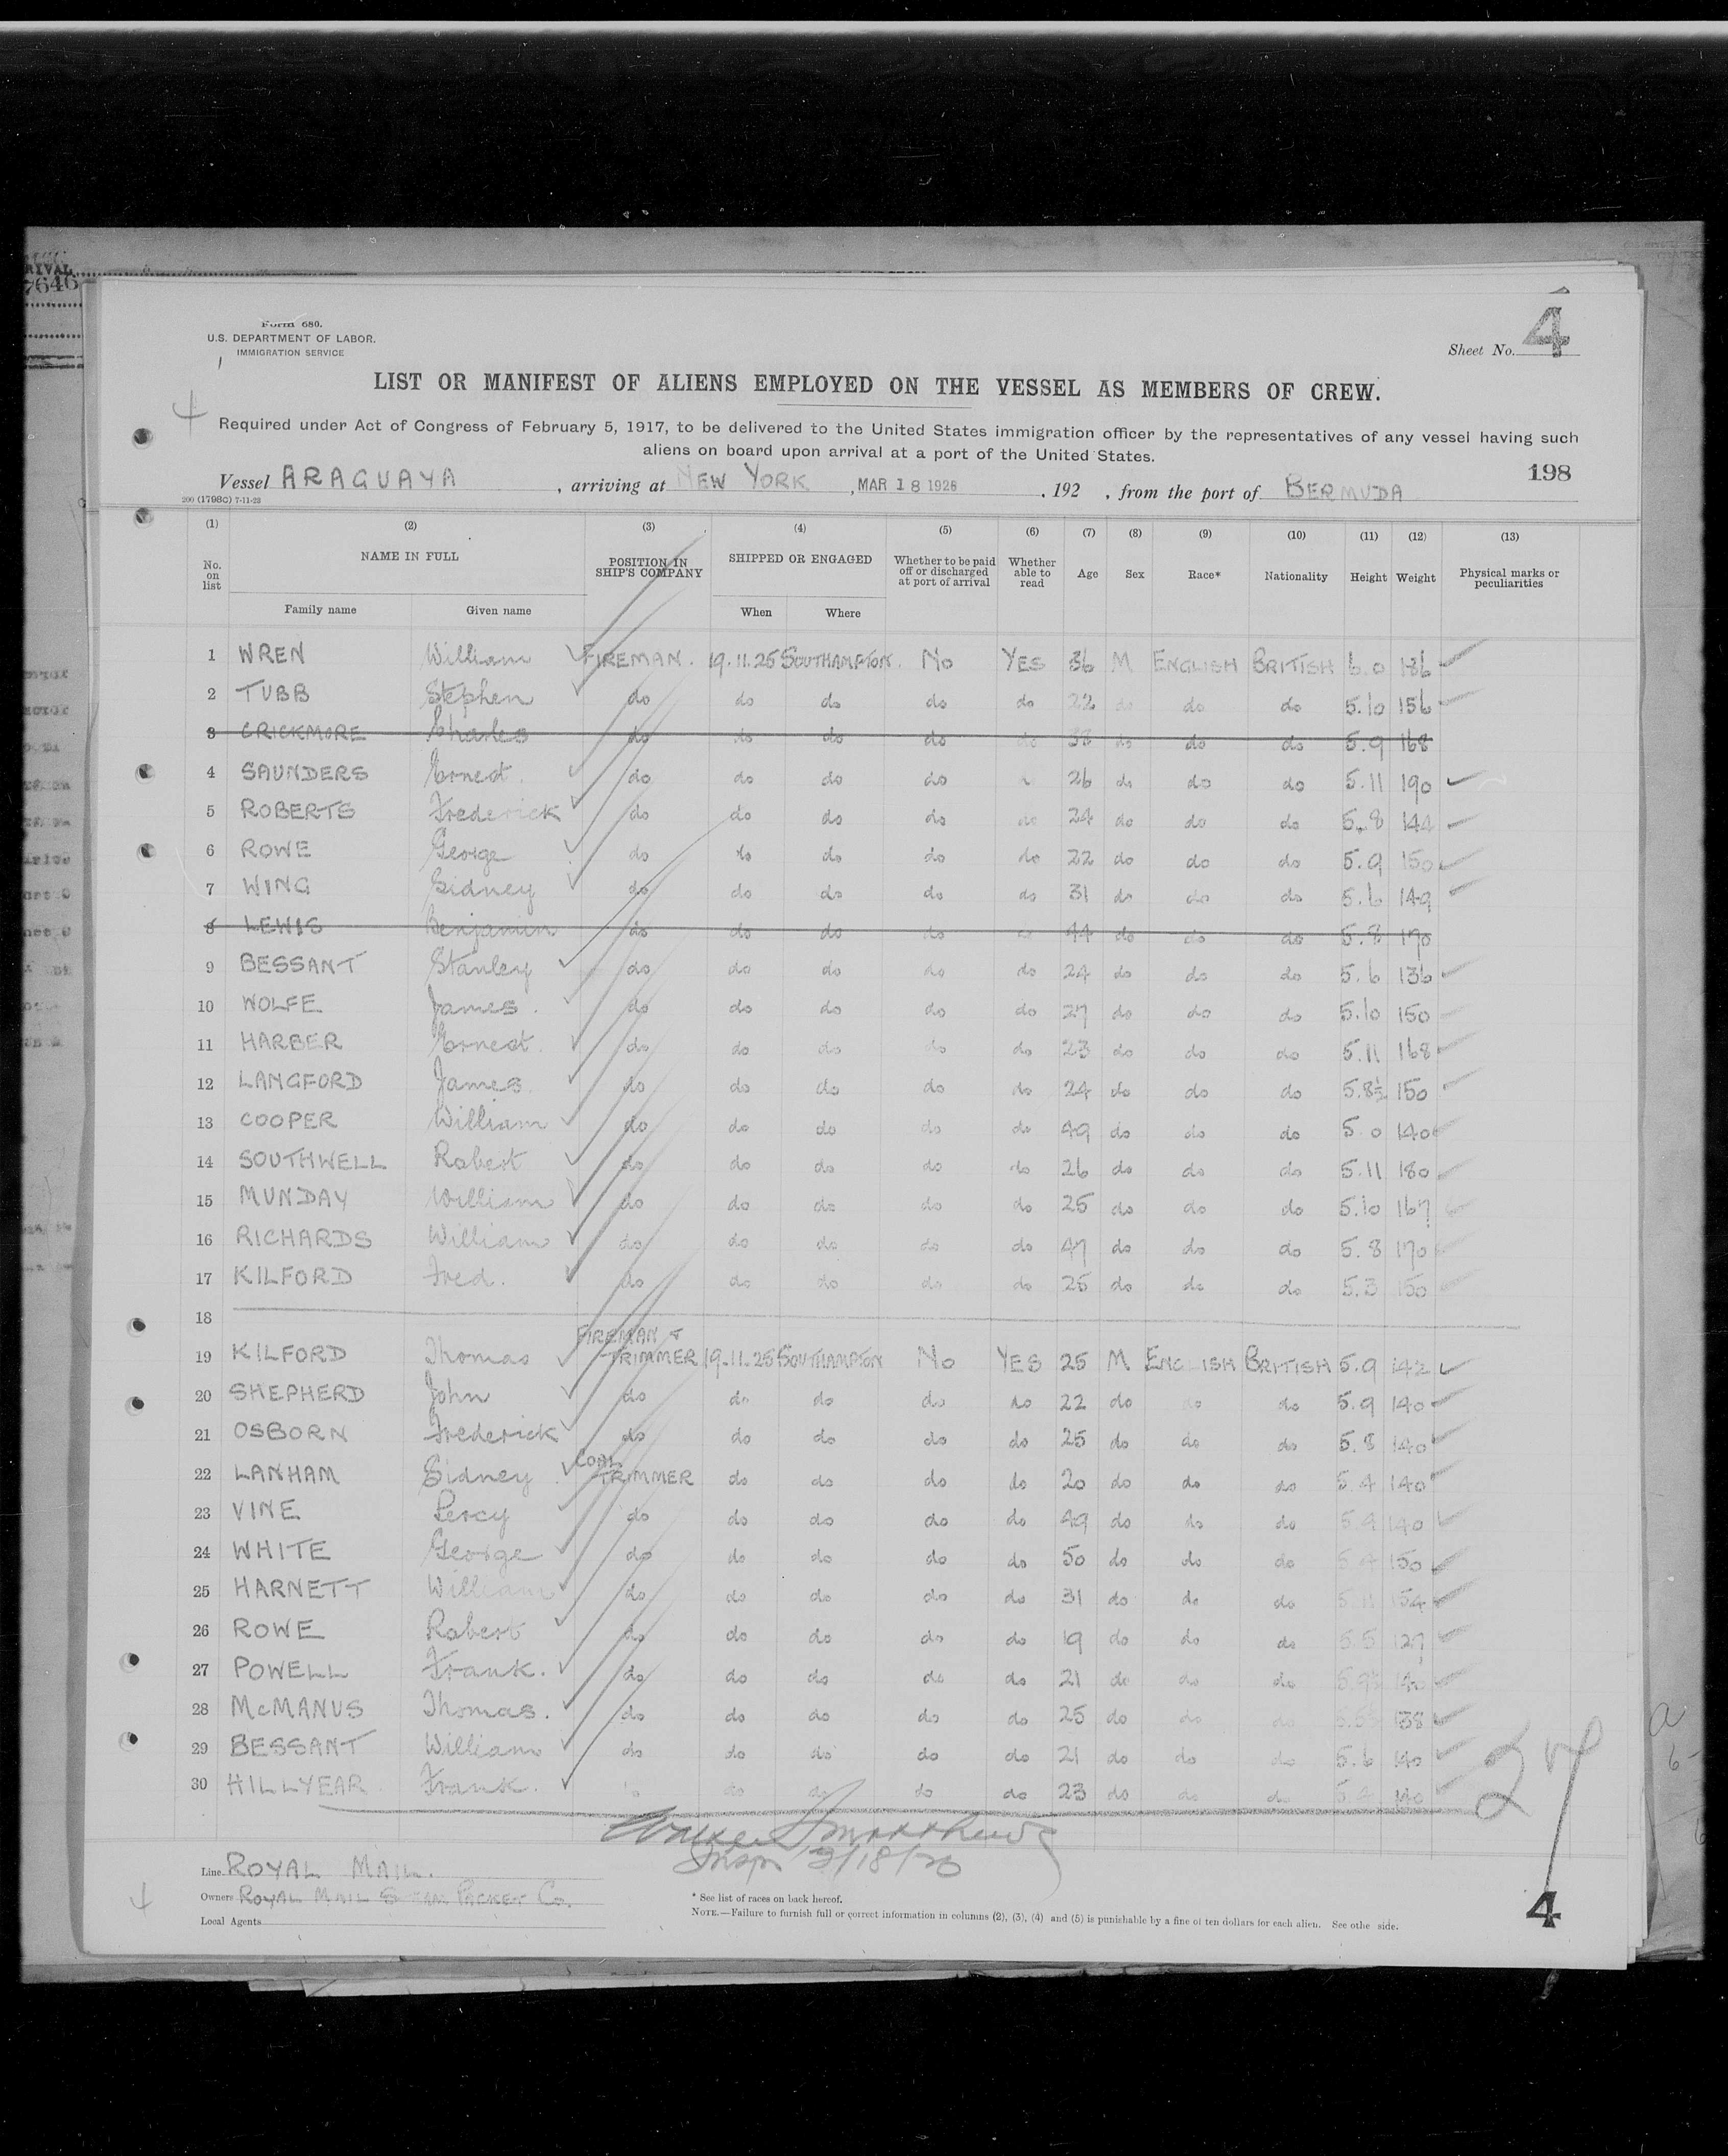 RIVAL
7646
Form 680.
U.S. DEPARTMENT OF LABOR.
IMMIGRATION SERVICE
Sheet No. 4
LIST OR MANIFEST OF ALIENS EMPLOYED ON THE VESSEL AS MEMBERS OF CREW.
Required under Act of Congress of February 5, 1917, to be delivered to the United States immigration officer by the representatives of any vessel having such
aliens on board upon arrival at a port of the United States.
198
Vessel ARAGUAYA, arriving at NEW YORK, MAR 18 1926, 192 , from the port of BERMUDA
200 (1798C) 7-11-23
(1) (2) (3) (4) (5) (6) (7) (8) (9) (10) (11) (12) (13)
No. on list NAME IN FULL POSITION IN SHIP'S COMPANY SHIPPED OR ENGAGED Whether to be paid off or discharged at port of arrival Whether able to read Age Sex Race* Nationality Height Weight Physical marks or peculiarities
Family name Given name When Where
1 WREN William FIREMAN. 19.11.25 SOUTHAMPTON. No YES 36 M ENGLISH BRITISH 6.0 186
2 TUBB Stephen do do do do do 22 do do do 5.10 156
3 CRICKMORE Charles do do do do do 38 do do do 5.9 168
4 SAUNDERS Ernest. do do do do 26 do do do 5.11 190
5 ROBERTS Frederick do do do do do 24 do do do 5.8 144
6 ROWE George do do do do do 22 do do do 5.9 150
7 WING Sidney do do do do do 31 do do do 5.6 149
8 LEWIS Benjamin do do do do do 44 do do do 5.8 170
9 BESSANT Stanley do do do do do 24 do do do 5.6 136
10 WOLFE James. do do do do do 27 do do do 5.10 150
11 HARBER Ernest. do do do do do 23 do do do 5.11 168
12 LANGFORD James. do do do do do 24 do do do 5.8½ 150
13 COOPER William do do do do do 49 do do do 5.0 140
14 SOUTHWELL Robert do do do do do 26 do do do 5.11 180
15 MUNDAY William do do do do do 25 do do do 5.10 167
16 RICHARDS William do do do do do 47 do do do 5.8 170
17 KILFORD Fred. do do do do do 25 do do do 5.3 150
18
19 KILFORD Thomas FIREMAN & TRIMMER 19.11.25 SOUTHAMPTON No YES 25 M ENGLISH BRITISH 5.9 142
20 SHEPHERD John do do do do do 22 do do do 5.9 140
21 OSBORN Frederick do do do do do 25 do do do 5.8 140
22 LANHAM Sidney COAL TRIMMER do do do do 20 do do do 5.4 140
23 VINE Percy do do do do do 49 do do do 5.4 140
24 WHITE George do do do do do 50 do do do 5.4 150
25 HARNETT William do do do do do 31 do do do 5.11 154
26 ROWE Robert do do do do do 19 do do do 5.5 127
27 POWELL Frank. do do do do do 21 do do do 140
28 McMANUS Thomas. do do do do do 25 do do do 138
29 BESSANT William do do do do do 21 do do do 5.6 140
30 HILLYEAR Frank. do do do do 23 do do do 5.4 140
27
Walter J Matthews
Insp 3/18/26
Line ROYAL MAIL.
Owners ROYAL MAIL STEAM PACKET Co.
Local Agents
* See list of races on back hereof.
NOTE.—Failure to furnish full or correct information in columns (2), (3), (4) and (5) is punishable by a fine of ten dollars for each alien. See othe side.
4